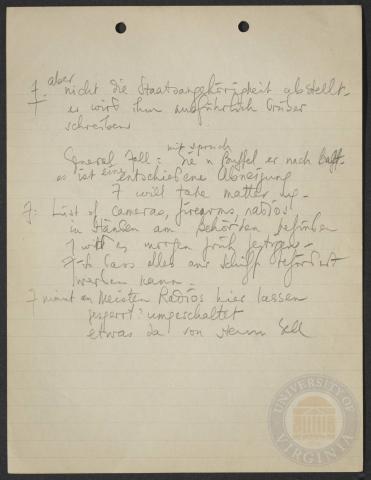 aber
7. nicht die Staatsangehörigkeit abstellt.
er wird ihm ausführlich drüber
schreiben
mit spruch
General Fall: Sie n Büffel er nach
es ist eine entschiedene Abneigung
7 will take matter up.
7: List of cameras, firearms, radios
in Händen am Behörden befinden
7 wird es morgen früh
7 dass alles aufs Schiff befördert
werden kann.
7 meint en Meisten Radios hier lassen
gesperrt? umgeschaltet
etwas da von Herrn Sell
UNIVERSITY OF VIRGINIA